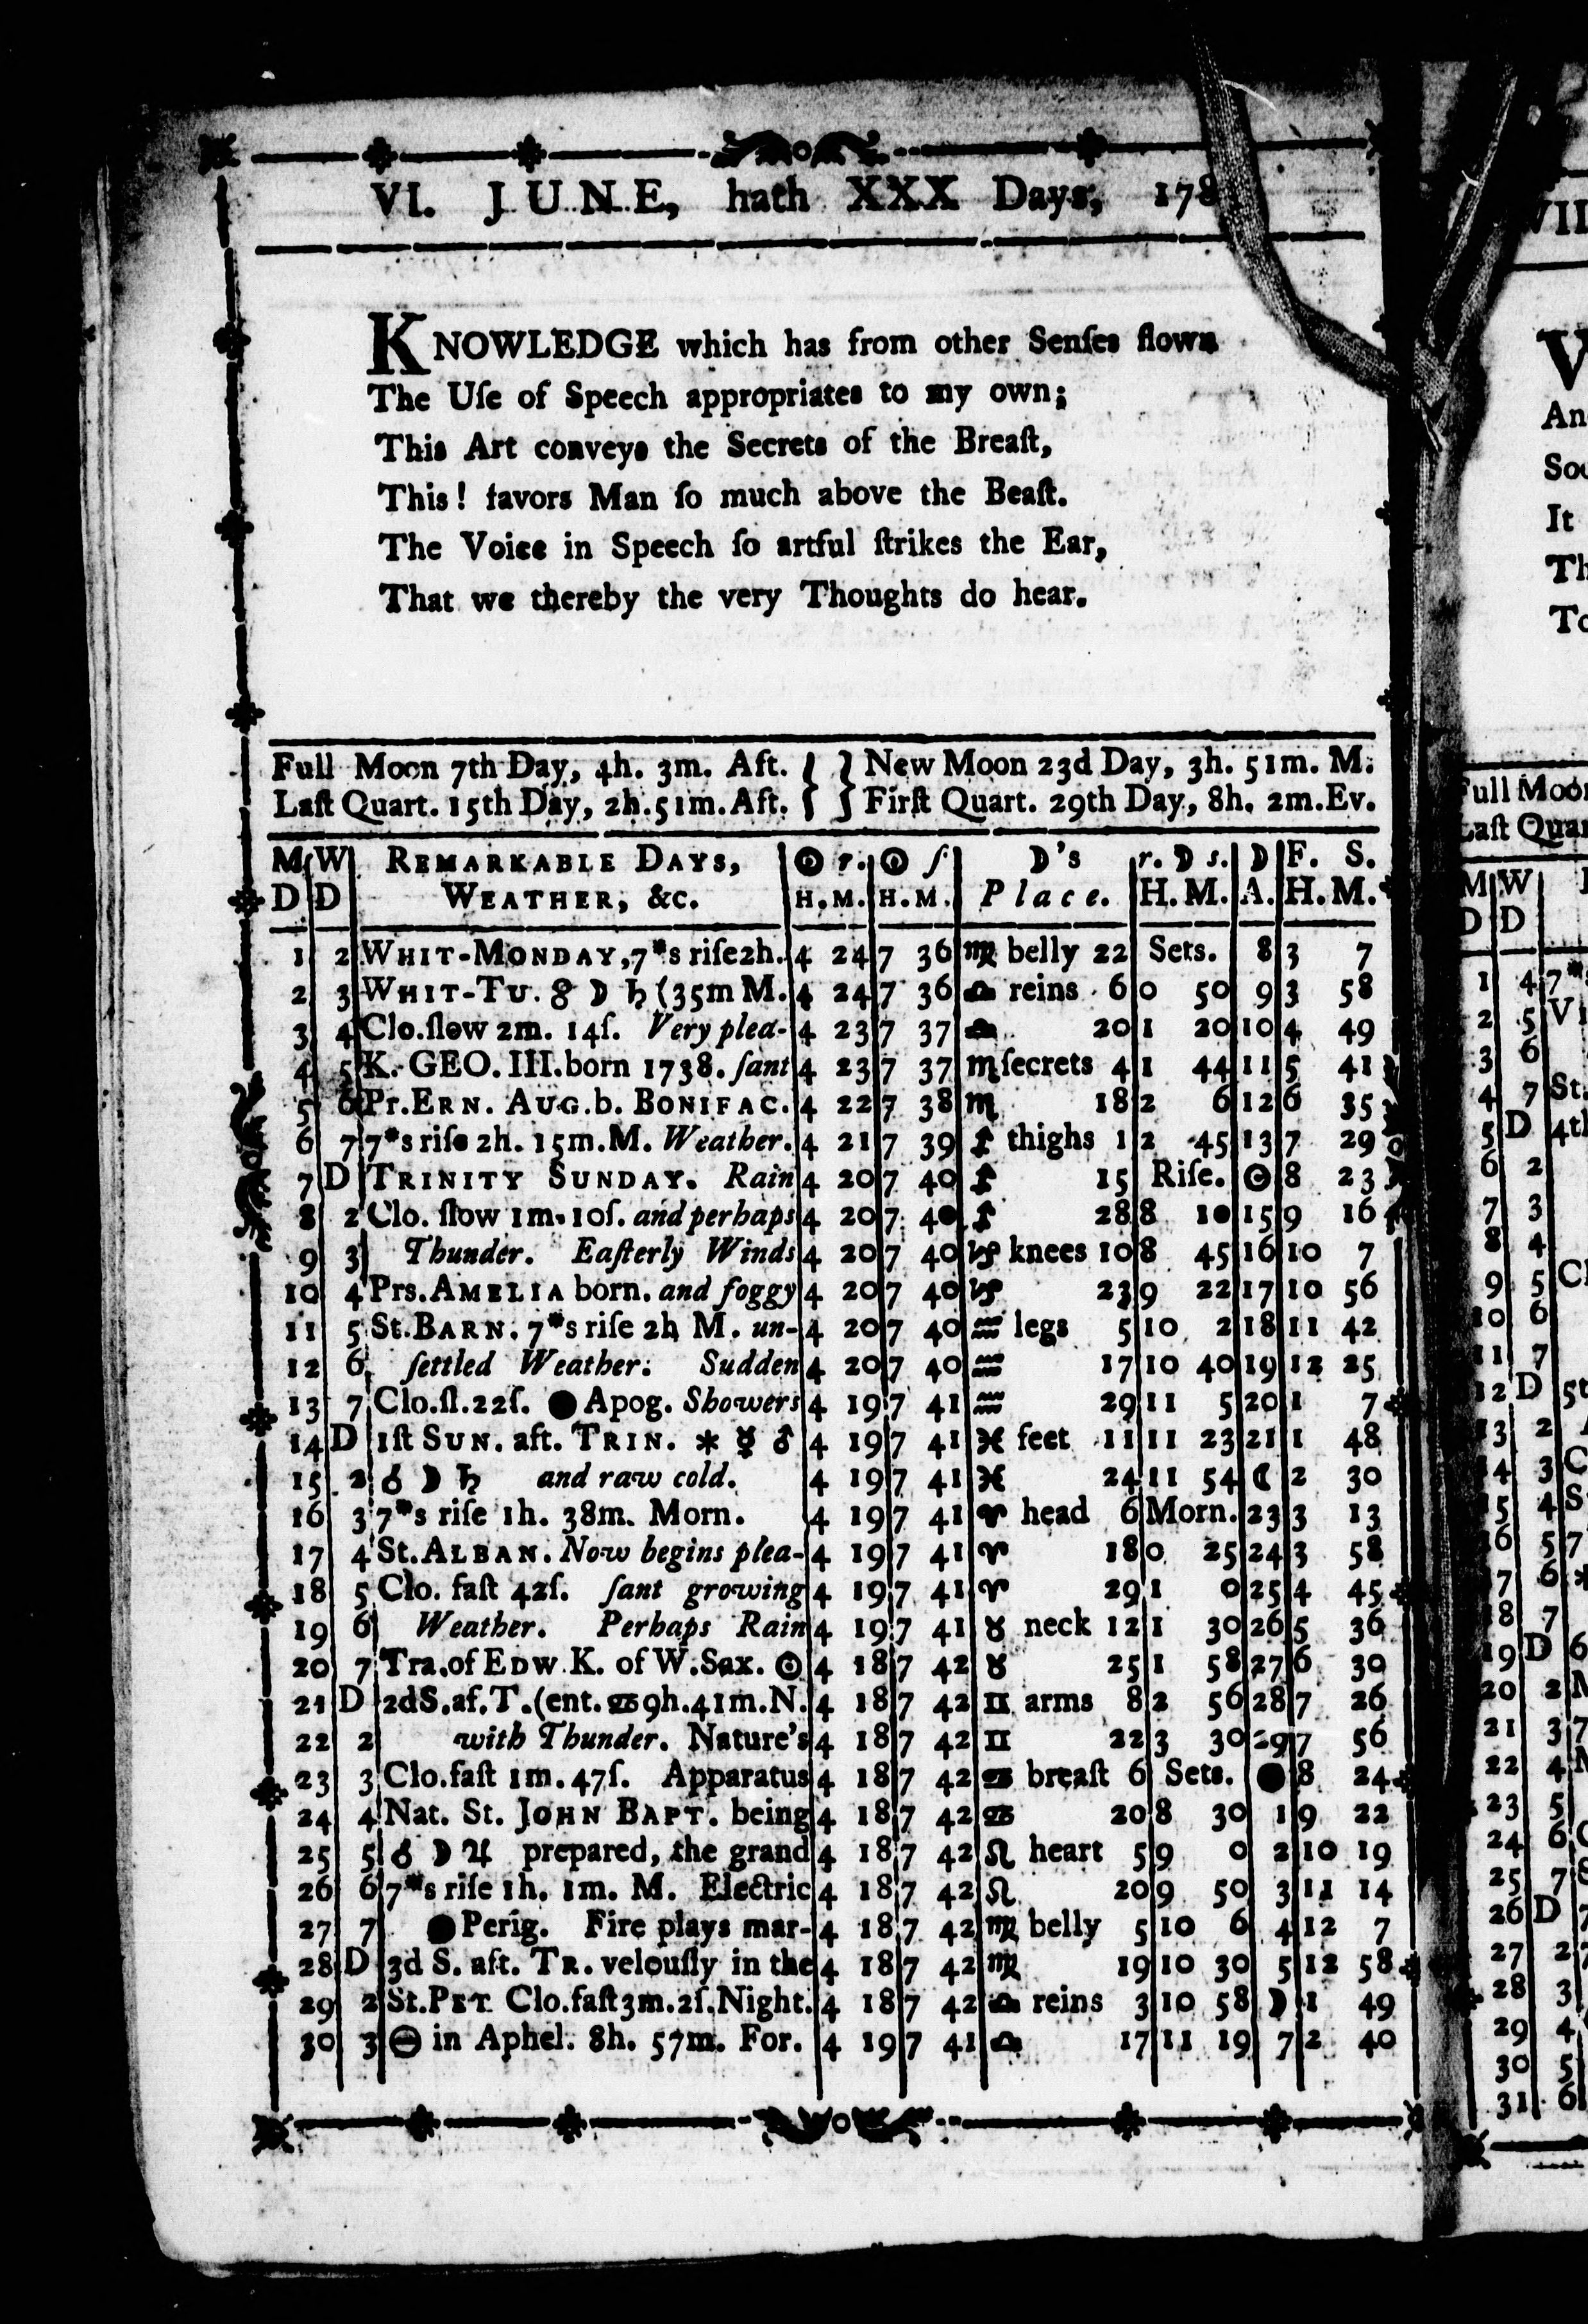 VI. JUNE, hath XXX Days, 178
KNOWLEDGE which has from other Senſes flown
The Uſe of Speech appropriates to my own;
This Art conveys the Secrets of the Breaſt,
This! favors Man ſo much above the Beaſt.
The Voice in Speech ſo artful ſtrikes the Ear,
That we thereby the very Thoughts do hear.
Full Moon 7th Day, 4h. 3m. Aft. } } New Moon 23d Day, 3h. 51m. M.
Laſt Quart. 15th Day, 2h. 51m. Aft. } } Firſt Quart. 29th Day, 8h. 2m. Ev.
M W REMARKABLE DAYS, ☉ r. ☉ ſ ☽'s r. ☽ s. ☽ F. S.
D D WEATHER, &c. H. M. H. M. Place. H. M. A. H. M.
1 2 WHIT-MONDAY, 7*s riſe 2h. 4 24 7 36 ♍ belly 22 Sets. 8 3 7
2 3 WHIT-TU. ☍ ☽ ♄ (35m M. 4 24 7 36 ♎ reins 6 0 50 9 3 58
3 4 Clo. ſlow 2m. 14ſ. Very plea- 4 23 7 37 ♎ 20 1 20 10 4 49
4 5 K. GEO. III. born 1738. ſant 4 23 7 37 ♏ ſecrets 4 1 44 11 5 41
5 6 Pr. ERN. AUG. b. BONIFAC. 4 22 7 38 ♏ 18 2 6 12 6 35
6 7 7*s riſe 2h. 15m. M. Weather. 4 21 7 39 ♐ thighs 1 2 45 13 7 29
7 D TRINITY SUNDAY. Rain 4 20 7 40 ♐ 15 Riſe. ☉ 8 23
8 2 Clo. ſlow 1m. 10ſ. and perhaps 4 20 7 40 ♐ 28 8 10 15 9 16
9 3 Thunder. Eaſterly Winds 4 20 7 40 ♑ knees 10 8 45 16 10 7
10 4 Prs. AMELIA born. and foggy 4 20 7 40 ♑ 23 9 22 17 10 56
11 5 St. BARN. 7*s riſe 2h M. un- 4 20 7 40 ♒ legs 5 10 2 18 11 42
12 6 ſettled Weather. Sudden 4 20 7 40 ♒ 17 10 40 19 12 25
13 7 Clo. ſl. 22ſ. ● Apog. Showers 4 19 7 41 ♒ 29 11 5 20 1 7
14 D 1ſt SUN. aft. TRIN. ⚹ ☿ ♂ 4 19 7 41 ♓ feet 11 11 23 21 1 48
15 2 ☌ ☽ ♄ and raw cold. 4 19 7 41 ♓ 24 11 54 ☾ 2 30
16 3 7*s riſe 1h. 38m. Morn. 4 19 7 41 ♈ head 6 Morn. 23 3 13
17 4 St. ALBAN. Now begins plea- 4 19 7 41 ♈ 18 0 25 24 3 58
18 5 Clo. faſt 42ſ. ſant growing 4 19 7 41 ♈ 29 1 0 25 4 45
19 6 Weather. Perhaps Rain 4 19 7 41 ♉ neck 12 1 30 26 5 36
20 7 Tra. of EDW K. of W. Sax. ☉ 4 18 7 42 ♉ 25 1 58 27 6 30
21 D 2d S. af. T. (ent. ♋ 9h. 41m. N. 4 18 7 42 ♊ arms 8 2 56 28 7 26
22 2 with Thunder. Nature's 4 18 7 42 ♊ 22 3 30 29 7 56
23 3 Clo. faſt 1m. 47ſ. Apparatus 4 18 7 42 ♋ breaſt 6 Sets. ● 8 24
24 4 Nat. St. JOHN BAPT. being 4 18 7 42 ♋ 20 8 30 1 9 22
25 5 ☌ ☽ ♃ prepared, the grand 4 18 7 42 ♌ heart 5 9 0 2 10 19
26 6 7*s riſe 1h. 1m. M. Electric 4 18 7 42 ♌ 20 9 50 3 11 14
27 7 ● Perig. Fire plays mar- 4 18 7 42 ♍ belly 5 10 6 4 12 7
28 D 3d S. aft. TR. velouſly in the 4 18 7 42 ♍ 19 10 30 5 12 58
29 2 St. PET Clo. faſt 3m. 2ſ. Night. 4 18 7 42 ♎ reins 3 10 58 ☽ 1 49
30 3 ⊖ in Aphel. 8h. 57m. For. 4 19 7 41 ♎ 17 11 19 7 2 40
VII
V
An
It
Th
To
M W
D D
1 4 7*
2 5 Vi
3 6
4 7 St.
5 D 4th
6 2
7 3
8 4
9 5 Cl
10 6
11 7
12 D 5t
13 2
14 3 C
15 4 S
16 5 7
17 6 *
18 7
19 D 6
20 2
21 3 7
22 4
23 5
24 6
25 7
26 D 7
27 2
28 3
29 4
30 5
31 6